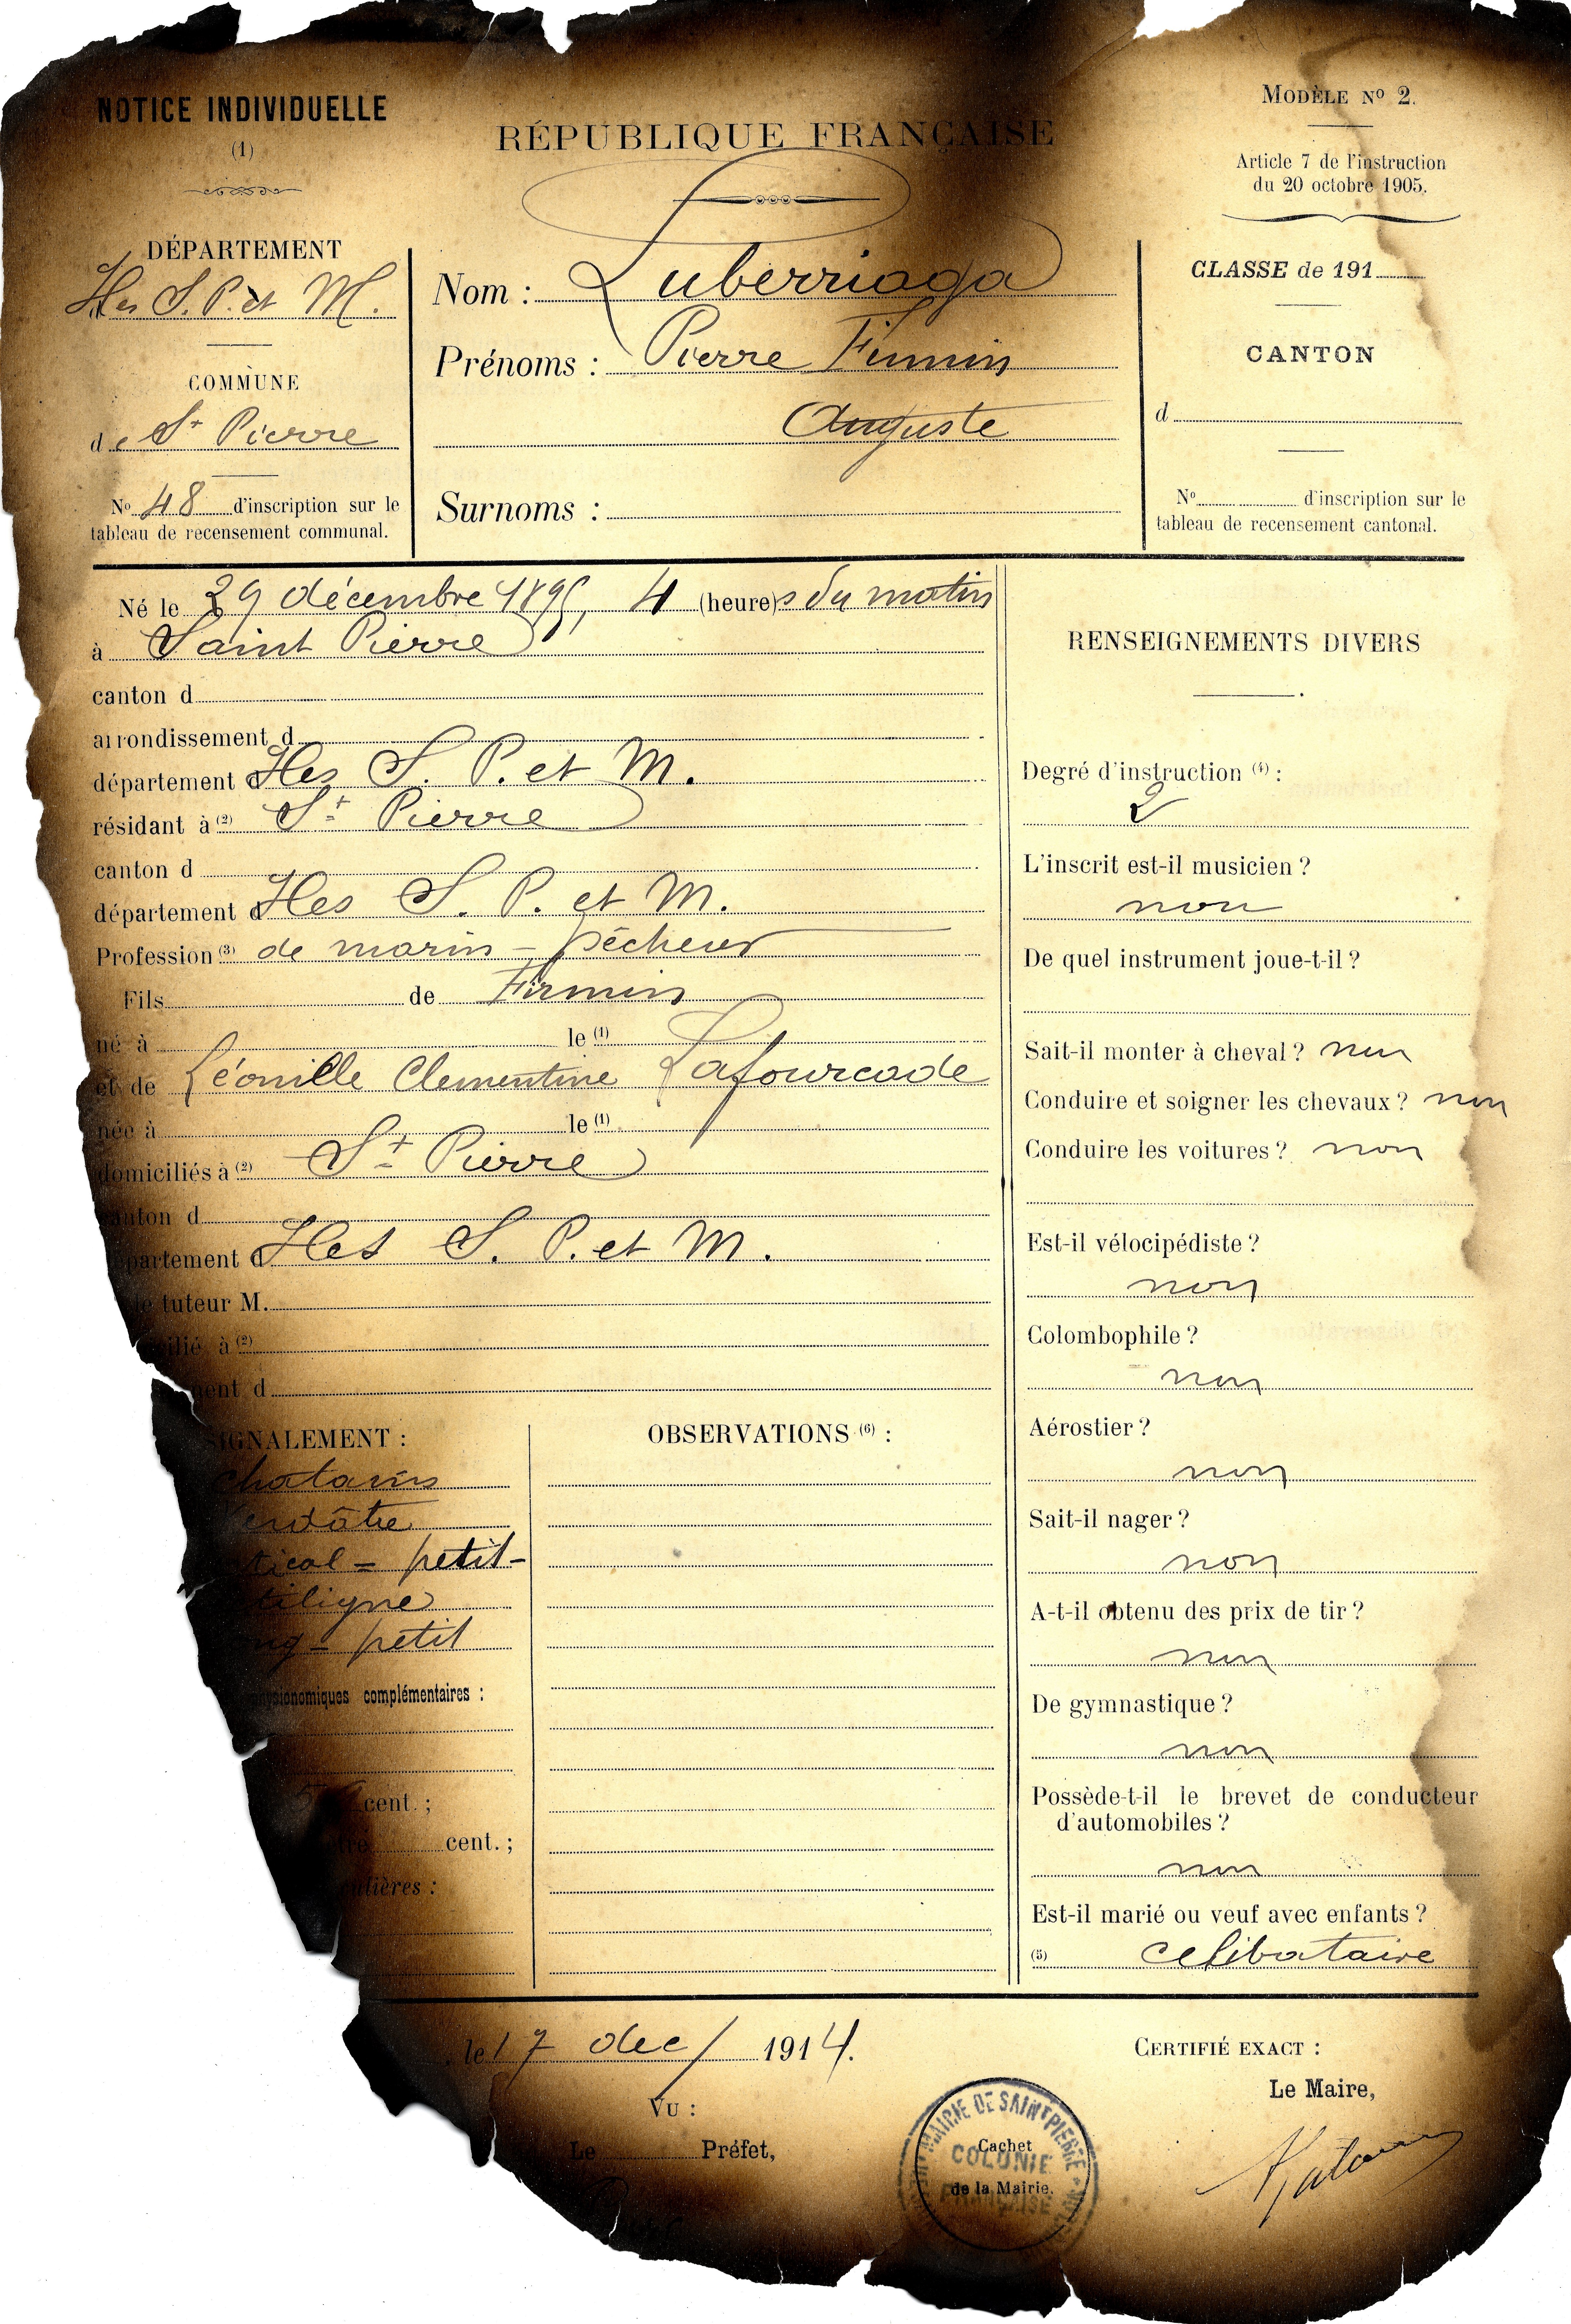 NOTICE INDIVIDUELLE
(1)
RÉPUBLIQUE FRANÇAISE
MODÈLE Nº 2.
Article 7 de l'instruction
du 20 octobre 1905.
DÉPARTEMENT
Iles S. P. et M.
COMMUNE
de St Pierre
Nº 48 d'inscription sur le
tableau de recensement communal.
Nom : Luberriaga
Prénoms : Pierre Firmin
Auguste
Surnoms :
CLASSE de 191
CANTON
d
Nº d'inscription sur le
tableau de recensement cantonal.
Né le 29 décembre 1895, 4 (heure)s du matin
à Saint Pierre
canton d
arrondissement d
département d Iles S. P. et M.
résidant à (2) St Pierre
canton d
département d Iles S. P. et M.
Profession (3) de marin - pêcheur
Fils de Firmin
né à le (1)
et de Léonille Clementine Lafourcade
née à le (1)
domiciliés à (2) St Pierre
canton d
département d Iles S. P. et M.
le tuteur M.
cilié à (2)
ment d
SIGNALEMENT :
chatains
Verdâtre
tical = petit-
tiligne
ong - petit
physionomiques complémentaires :
cent. ;
cent. ;
culières :
OBSERVATIONS (6) :
RENSEIGNEMENTS DIVERS
Degré d'instruction (4) :
2
L'inscrit est-il musicien ?
non
De quel instrument joue-t-il ?
Sait-il monter à cheval ? non
Conduire et soigner les chevaux ? non
Conduire les voitures ? non
Est-il vélocipédiste ?
non
Colombophile ?
non
Aérostier ?
non
Sait-il nager ?
non
A-t-il obtenu des prix de tir ?
non
De gymnastique ?
non
Possède-t-il le brevet de conducteur
d'automobiles ?
non
Est-il marié ou veuf avec enfants ?
(5) celibataire
, le 17 dec/ 1914.
VU :
Le Préfet,
MAIRIE DE SAINT PIERRE
COLONIE
FRANÇAISE
Cachet
de la Mairie.
CERTIFIÉ EXACT :
Le Maire,